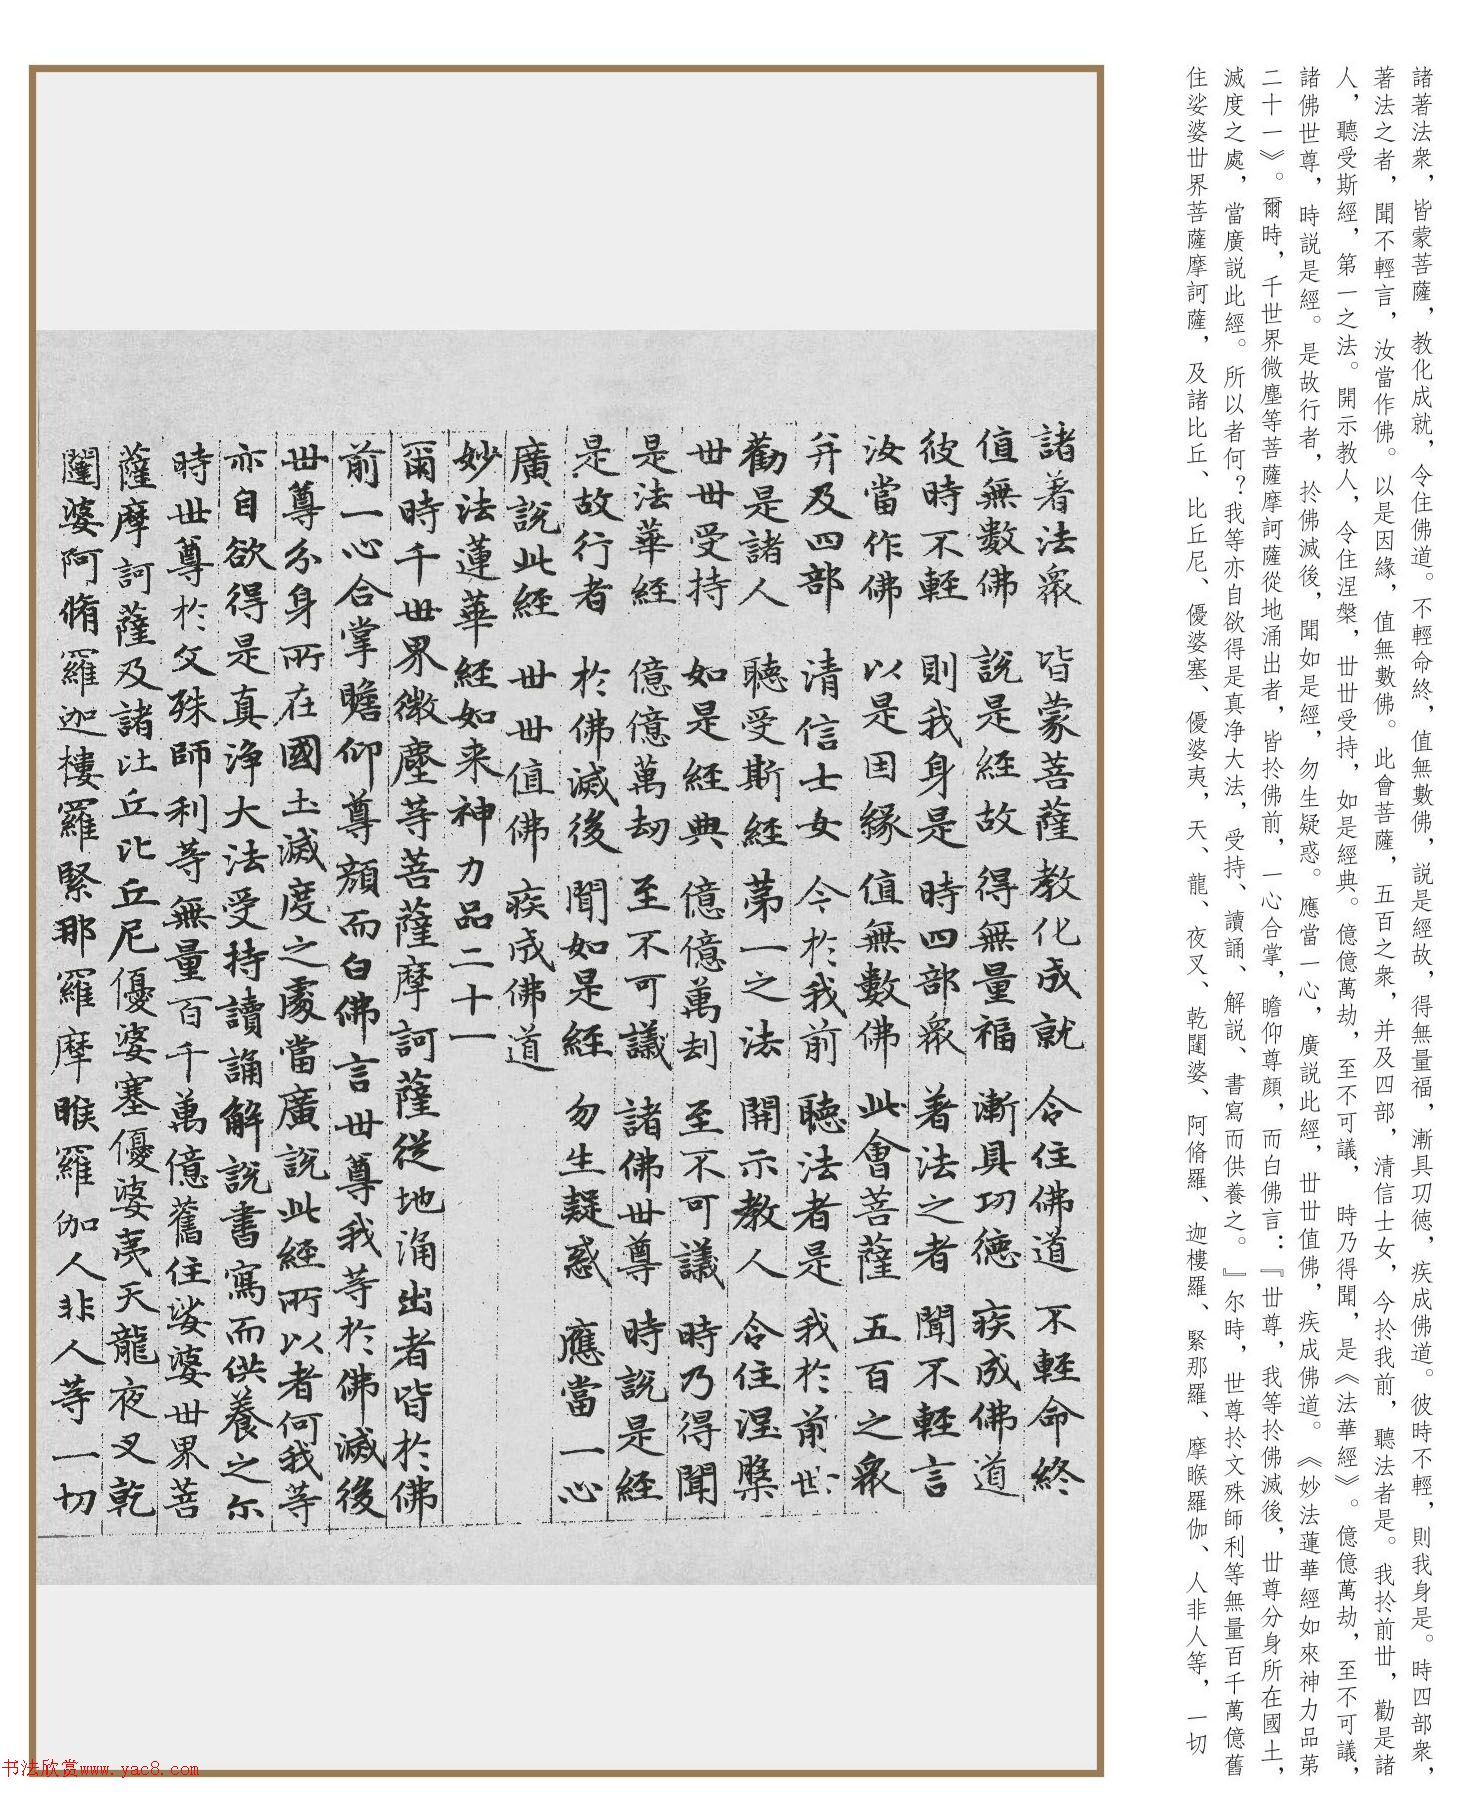 諸著法衆，皆蒙菩薩，教化成就，令住佛道。不輕命終，值無數佛，説是經故，得無量福，漸具㓛徳，疾成佛道。彼時不輕，則我身是。時四部衆，
著法之者，聞不輕言，汝當作佛。以是因緣，值無數佛。此會菩薩，五百之衆，并及四部，清信士女，今扵我前，聽法者是。我扵前丗，勸是諸
人，聽受斯經，第一之法。開示教人，令住涅槃，丗丗受持，如是經典。億億萬劫，至不可議，時乃得聞，是《法華經》。億億萬劫，至不可議，
諸佛世尊，時説是經。是故行者，扵佛滅後，聞如是經，勿生疑惑。應當一心，廣説此經，丗丗值佛，疾成佛道。《妙法蓮華經如來神力品苐
二十一》。爾時，千世界微塵等菩薩摩訶薩從地涌出者，皆扵佛前，一心合掌，瞻仰尊顔，而白佛言：『丗尊，我等扵佛滅後，丗尊分身所在國土，
滅度之處，當廣説此經。所以者何？我等亦自欲得是真净大法，受持、讀誦、解説、書寫而供養之。』尔時，世尊扵文殊師利等無量百千萬億舊
住娑婆丗界菩薩摩訶薩，及諸比丘、比丘尼、優婆塞、優婆夷，天、龍、夜叉、乾闥婆、阿脩羅、迦樓羅、緊那羅、摩睺羅伽、人非人等，一切
諸著法衆　皆蒙菩薩　教化成就　令住佛道　不輕命終
值無數佛　說是經故　得無量福　漸具㓛德　疾成佛道
彼時不輕　則我身是　時四部衆　著法之者　聞不輕言
汝當作佛　以是因緣　值無數佛　此會菩薩　五百之衆
并及四部　清信士女　今扵我前　聽法者是　我扵前世
勸是諸人　聽受斯經　苐一之法　開示教人　令住涅槃
丗丗受持　如是經典　億億萬劫　至不可議　時乃得聞
是法華經　億億萬劫　至不可議　諸佛丗尊　時說是經
是故行者　扵佛滅後　聞如是經　勿生疑惑　應當一心
廣說此經　丗丗值佛　疾成佛道
妙法蓮華經如来神力品二十一
爾時千丗界微塵等菩薩摩訶薩從地涌出者皆扵佛
前一心合掌瞻仰尊顔而白佛言丗尊我等扵佛滅後
丗尊分身所在國土滅度之處當廣說此經所以者何我等
亦自欲得是真淨大法受持讀誦解說書寫而供養之尔
時丗尊扵文殊師利等無量百千萬億舊住娑婆丗界菩
薩摩訶薩及諸比丘比丘尼優婆塞優婆夷天龍夜叉乾
闥婆阿脩羅迦樓羅緊那羅摩睺羅伽人非人等一切
书法欣赏www.yac8.com